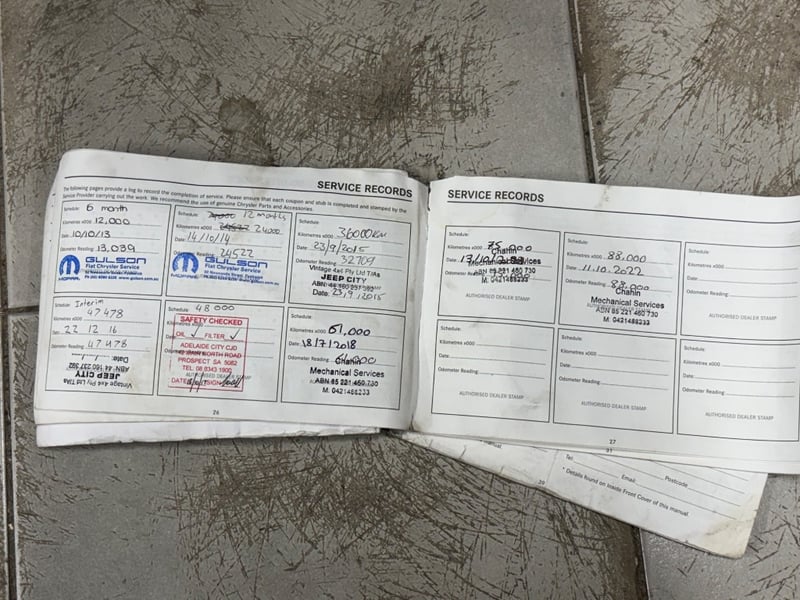 SERVICE RECORDS
The following pages provide a log to record the completion of service. Please ensure that each coupon and stub is completed and stamped by the
Service Provider carrying out the work. We recommend the use of genuine Chrysler Parts and Accessories.
Schedule: 6 month
Kilometres x000 12,000
Date: 10/10/13
Odometer Reading: 13,039
MOPAR
GULSON
Fiat Chrysler Service
Schedule: 12 months
Kilometres x000 24000
Date: 14/10/14
24522
MOPAR
GULSON
Fiat Chrysler Service
Schedule:
Kilometres x000 36000km
Date: 23/9/2015
Odometer Reading: 32709
Vintage 4x4 Pty Ltd T/As
JEEP CITY
ABN: 44 160 237 392
Date: 23.9.2015
Schedule: Interim
Kilometres x000 47478
Date: 22 12 16
Odometer Reading: 47478
Vintage 4x4 Pty Ltd T/As
JEEP CITY
ABN: 44 160 237 392
Date:
Schedule: 48000
SAFETY CHECKED
OIL ✓ FILTER ✓
ADELAIDE CITY CJD
MAIN NORTH ROAD
PROSPECT SA 5082
TEL: 08 8343 1900
AUTHORISED DEALER STAMP
DATE SIGN
Schedule:
Kilometres x000 61,000
Date: 18/7/2018
Odometer Reading: 61,000
Chahin
Mechanical Services
ABN 85 221 460 730
M. 0421486233
26
SERVICE RECORDS
Schedule:
Kilometres x000 75,000
Date: 17/10/
Chahin
Mechanical Services
ABN 85 221 460 730
M. 0421486233
AUTHORISED DEALER STAMP
Schedule:
Kilometres x000 88,000
Date: 11.10.2022
Odometer Reading: 88,000
Chahin
Mechanical Services
ABN 85 221 460 730
M. 0421486233
Schedule:
Kilometres x000
Date:
Odometer Reading:
AUTHORISED DEALER STAMP
Schedule:
Kilometres x000
Date:
Odometer Reading:
AUTHORISED DEALER STAMP
Schedule:
Kilometres x000
Date:
Odometer Reading:
AUTHORISED DEALER STAMP
Schedule:
Kilometres x000
Date:
Odometer Reading:
AUTHORISED DEALER STAMP
27
31
Tel: Email: Postcode
* Details found on Inside Front Cover of this manual.